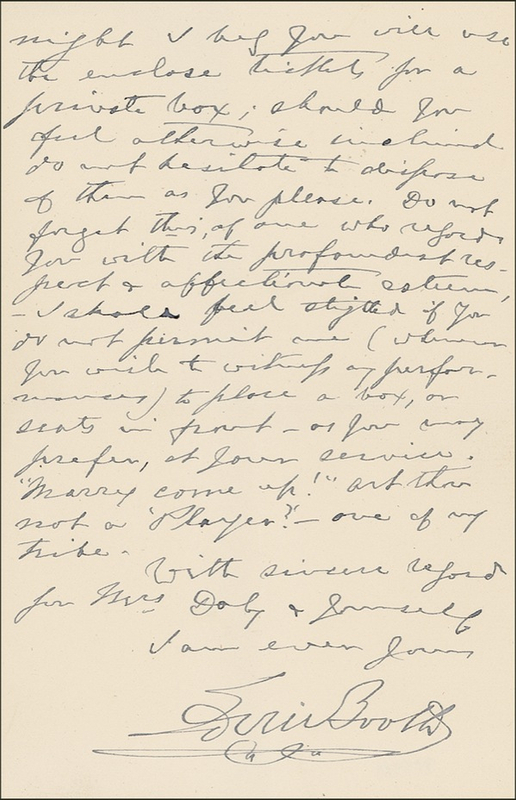 night I beg you will use
the enclose tickets for a
private box; should you
feel otherwise inclined
do not hesitate to dispose
of them as you please. Do not
forget this, of one who regards
you with the profoundest res-
pect & affectionate esteem,
- I should feel slighted if you
do not permit me (whenever
you wish to witness my perfor-
mances) to place a box, or
seats in front - as you may
prefer, at your service.
"Marry come up!" art thou
not a 'Player?' - one of my
tribe.
With sincere regard
for Mrs Daly & yourself
I am ever yours
Edwin Booth